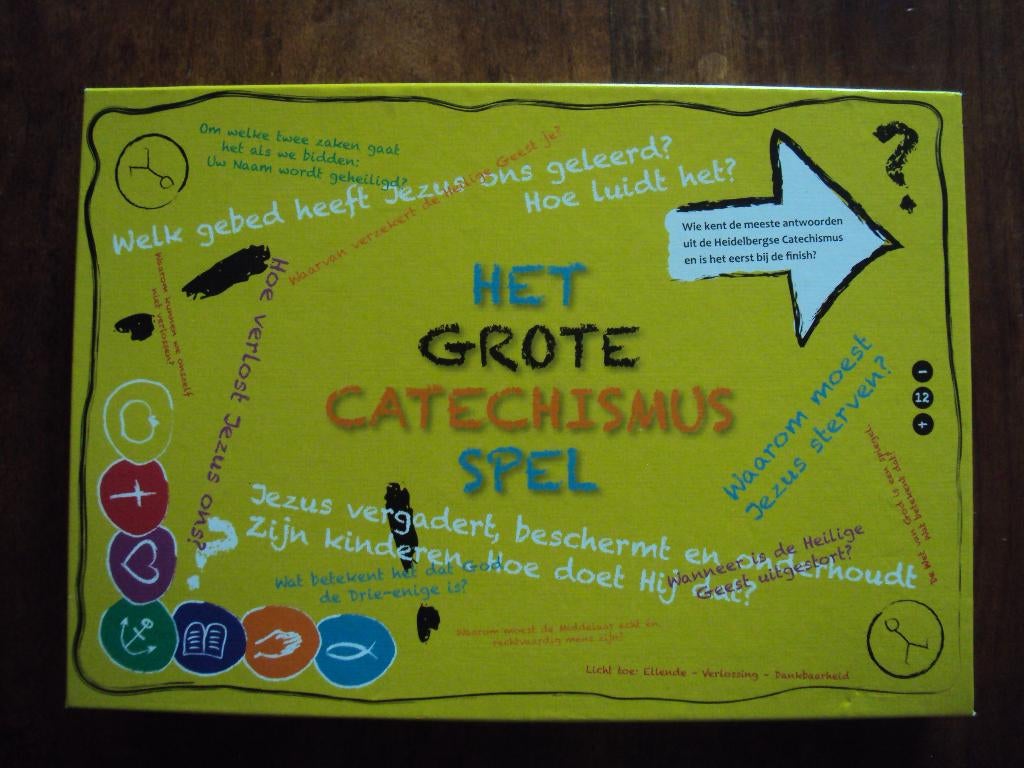 Om welke twee zaken gaat
het als we bidden:
Uw Naam wordt geheiligd?
Welk gebed heeft Jezus ons geleerd?
Hoe luidt het?
Waarvan verzekert de Heilige Geest je?
Wie kent de meeste antwoorden
uit de Heidelbergse Catechismus
en is het eerst bij de finish?
?
Waarom kunnen we onszelf
niet verlossen?
Hoe verlost Jezus ons?
HET
GROTE
CATECHISMUS
SPEL
Waarom moest
Jezus sterven?
-
12
+
De wet van God is een spiegel.
Wat betekent dat?
Jezus vergadert, beschermt en onderhoudt
Zijn kinderen. Hoe doet Hij dat?
?
Wat betekent het dat God
de Drie-enige is?
Wanneer is de Heilige
Geest uitgestort?
Waarom moest de Middelaar echt én
rechtvaardig mens zijn?
Licht toe: Ellende - Verlossing - Dankbaarheid